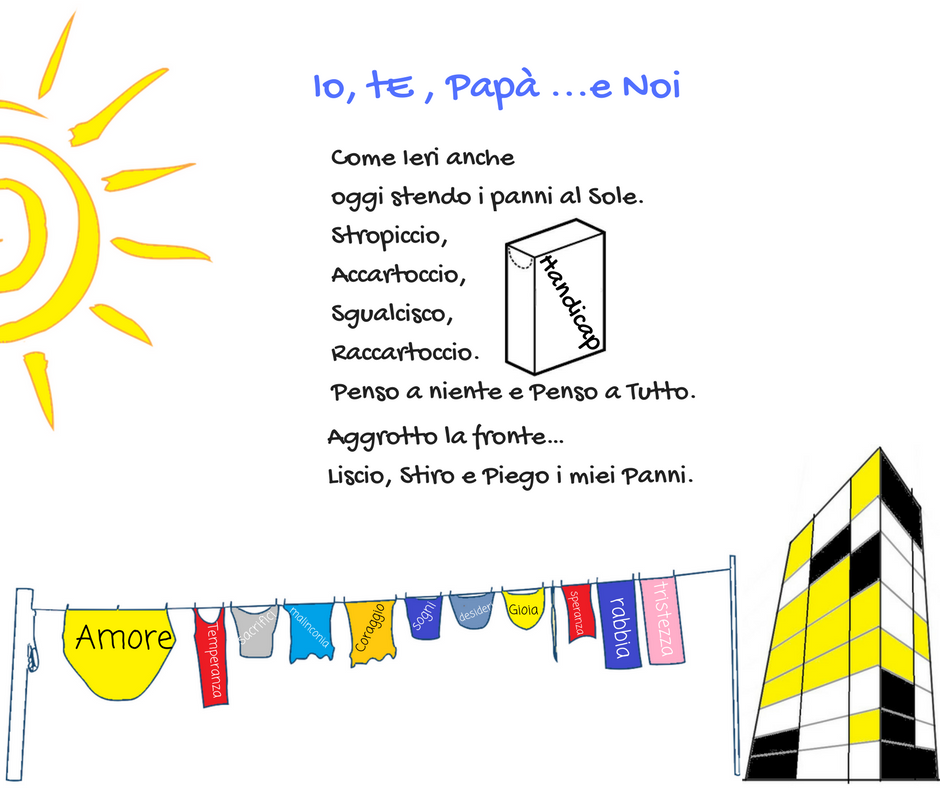 Io, tE, Papà ...e Noi
Come Ieri anche
oggi stendo i panni al Sole.
Stropiccio,
Accartoccio,
Sgualcisco,
Raccartoccio.
Handicap
Penso a niente e Penso a Tutto.
Aggrotto la fronte...
Liscio, Stiro e Piego i miei Panni.
Amore
Temperanza
sacrifici
malinconia
Coraggio
sogni
desideri
Gioia
speranza
rabbia
tristezza